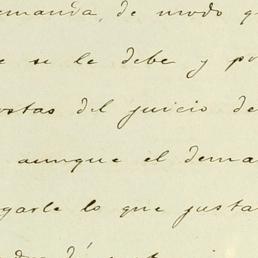 emanda, de modo q
e se le debe y po
ostas del juicio de
aunque el dema
garle lo que justa